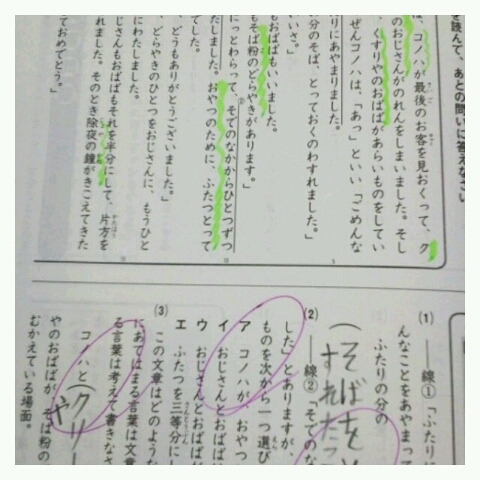 を読んで、あとの問いに答えなさい
は、コノハが最後のお客を見おくって、ク
のおじさんがのれんをしまいました。そし
、くすりやのおばばがあらいものをしてい
ぜんコノハは、「あっ」といい「ごめんな
りにあやまりました。
分のそば、とっておくのわすれました。」
いさ。」
もおばばもいいました。
もそば粉のどらやきがあります。」
にっとわらって、そでのなかからひとつずつ
たしました。おやつのために、ふたつとって
てした。
、どうもありがとうございました。」
、どらやきのひとつをおじさんに、もうひと
にわたしました。
じさんもおばばもそれを半分にして、片方を
ました。そのとき除夜の鐘がきこえてきた
ておめでとう。」
(1) ――線①「ふたりに
んなことをあやまって
ふたりの分の
(そばを
すれた
(2) ――線②「そでのな
した」とありますが、
ものを次から一つ選び
ア コノハが、おやつ
イ おじさんとおばば
ウ おじさんとおばば
エ ふたつを三等分にし
(3) この文章はどのような
にあてはまる言葉は文章
る言葉は考えて書きなさ
コノハと(クリー
や
やのおばばが、そば粉の
むかえている場面。